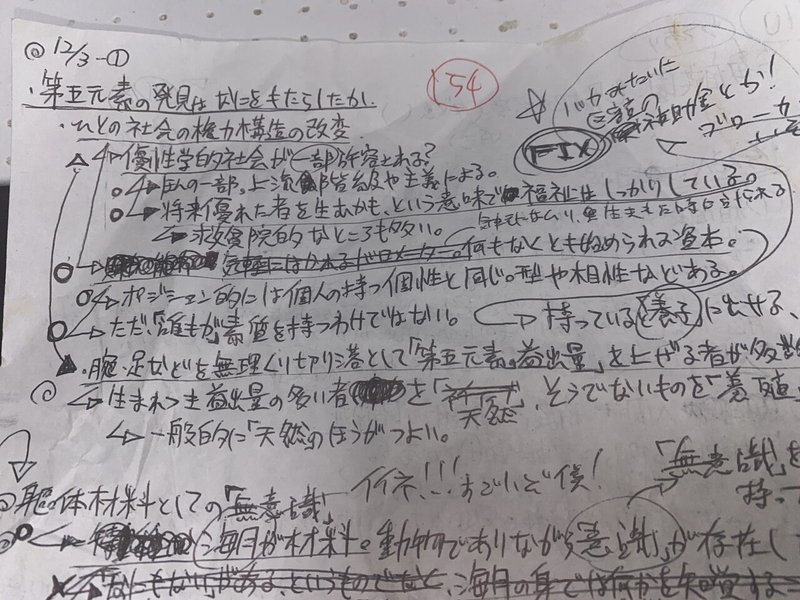 12/3-①
54
・第五元素の発見はなにをもたらしたか.
・ひとの社会の権力構造の改変
バカみたいに
補助金とか!
ブローカー
FIX
優性学的社会が一部許容される?
国の一部。上流階級や主義による。
将来優れた者を生むかも、という意味で福祉はしっかりしている。
救貧院的なところも多い。
気軽にはかれるバロメーター。何もなくとも始められる資本。
ポジション的には個人の持つ個性と同じ。型や相性などがある。
ただ、「誰もが」素質を持つわけではない。
持っていると養子に出せる、
・腕・足などを無理くり切り落として「第五元素。溢出量」を上げる者が多数
生まれつき溢出量の多い者を「天然」、そうでないものを「養殖
一般的に「天然」のほうがつよい。
躯体材料としての「無意識」
イイネ!!!すごいぞ僕!
「無意識」を
持っ
海月が材料。動物でありながら「意識」が存在し
「なにもない」がある、というものでなく、海月の身では何かを知覚する